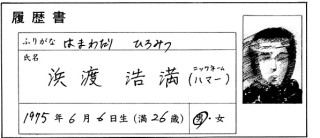 履歴書
ふりがな はまわたり ひろみつ
氏名
浜渡 浩満 ニックネーム(ハマー)
1975年6月6日生(満26歳) 男・女